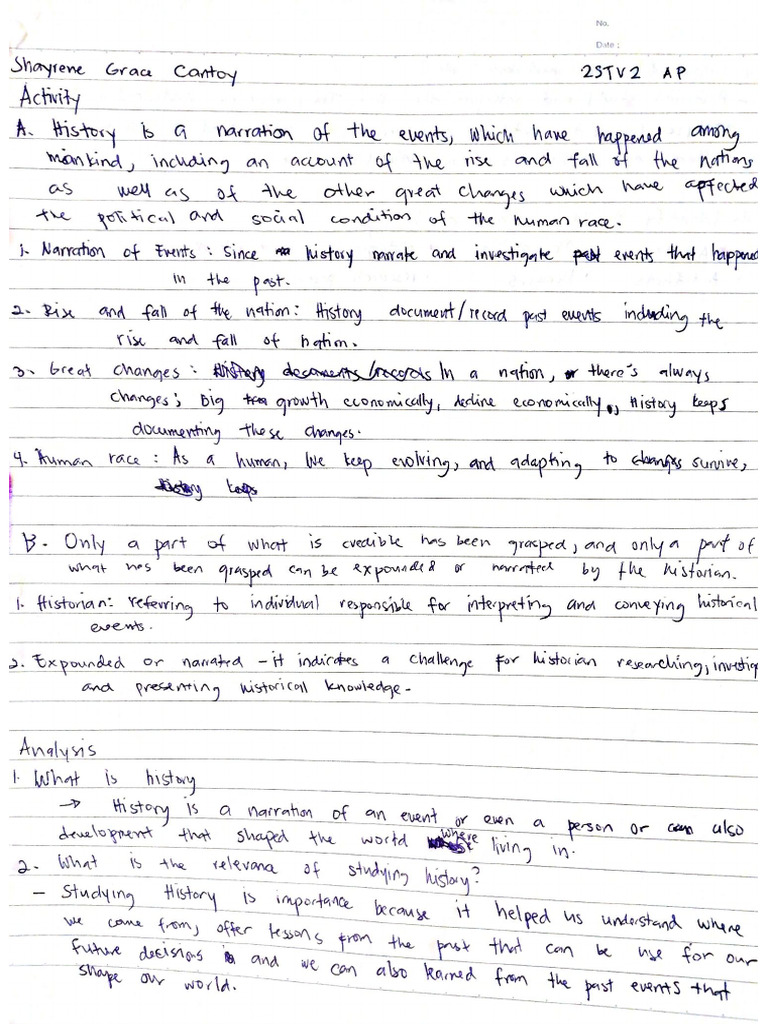 No.
Date:
Shayrene Grace Cantoy 2STV2 AP
Activity
A. History is a narration of the events, which have happened among
mankind, including an account of the rise and fall of the nations
as well as of the other great changes which have affected
the political and social condition of the human race.
1. Narration of Events: Since history narrate and investigate past events that happened
in the past.
2. Rise and fall of the nation: History document/record past events including the
rise and fall of nation.
3. Great changes: History documents/records In a nation, or there's always
changes; big growth economically, decline economically, History keeps
documenting these changes.
4. Human race: As a human, we keep evolving, and adapting to changes survive,
history keeps
B. Only a part of what is credible has been grasped, and only a part of
what has been grasped can be expounded or narrated by the historian.
1. Historian: referring to individual responsible for interpreting and conveying historical
events.
2. Expounded or narrated - it indicates a challenge for historian researching, investig
and presenting historical knowledge-
Analysis
1. What is history
→ History is a narration of an event or even a person or can also
development that shaped the world where living in.
2. What is the relevance of studying history?
- Studying History is importance because it helped us understand where
we came from, offer lessons from the past that can be use for our
future decisions and we can also learned from the past events that
shape our world.